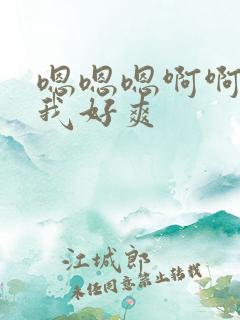 嗯嗯嗯啊啊
我好爽
江城郎
未经同意禁止转载